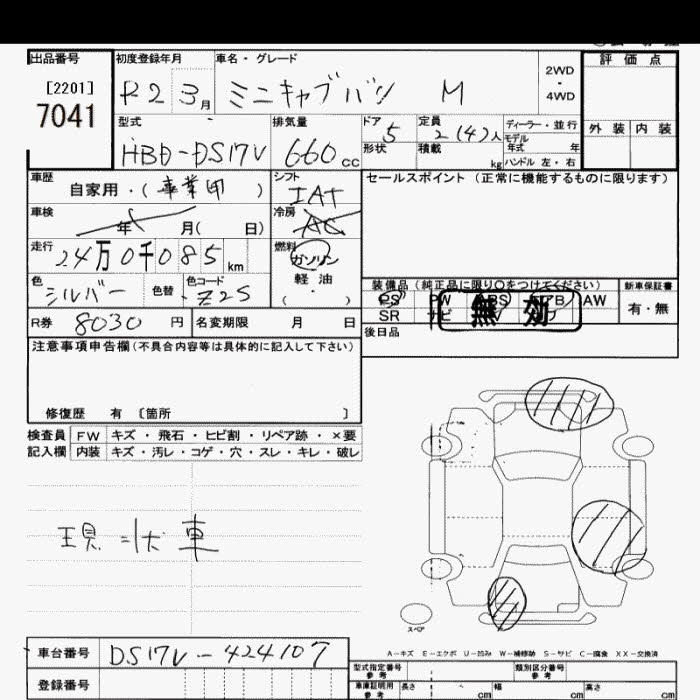 出品番号 初度登録年月 車名・グレード 評価点
[2201] 2WD
7041 R2 3月 ミニキャブバン M 4WD
型式 排気量 ドア 5 定員 2(4)人 ディーラー・並行 外装 内装
HBD-DS17V 660cc 形状 積載 kg モデル年式 年
ハンドル 左・右
車歴 シフト セールスポイント (正常に機能するものに限ります)
自家用・(事業用) IAT
車検 年 月( 日) 冷房 AC
走行 24万0千085km 燃料 ガソリン
軽油
( ・ )
色 シルバー 色替 色コード Z2S 装備品 (純正品に限り○をつけてください) 新車保証書
PS PW ABS エアB AW 有・無
SR ナビ 無効
R券 8030円 名変期限 月 日 後日品
注意事項申告欄(不具合内容等は具体的に記入して下さい)
修復歴 有 〔箇所 〕
検査員 FW キズ・飛石・ヒビ割・リペア跡・×要
記入欄 内装 キズ・汚レ・コゲ・穴・スレ・キレ・破レ
現状車
スペア
A-キズ E-エクボ U-凹み W-補修跡 S-サビ C-腐食 XX-交換済
車台番号 DS17V-424107 型式指定番号 参考 類別区分番号 参考
登録番号 車庫証明用 参考 長さ cm 幅 cm 高さ cm